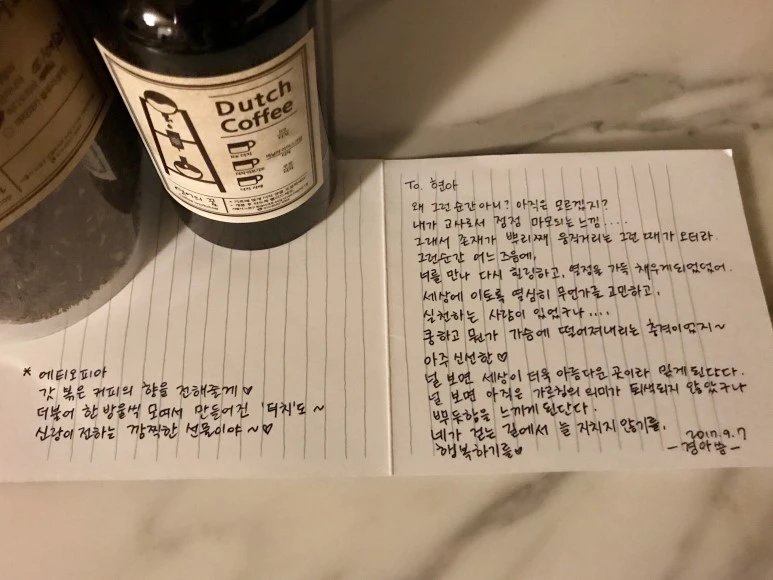 Dutch
Coffee
To. 현아
왜 그런 순간 아니? 아직은 모르겠지?
내가 교사로서 점점 마모되는 느낌....
그래서 존재가 뿌리째 움직거리는 그런 때가 오더라.
그런순간 어느 즈음에,
너를 만나 다시 힐링하고, 열정을 가득 채우게되었었어.
세상에 이토록 열심히 무언가를 고민하고,
실천하는 사람이 있었구나....
쿵하고 뭔가 가슴에 떨어져내리는 충격이었지~
아주 신선한♡
널 보면 세상이 더욱 아름다운 곳이라 믿게 된단다.
널 보면 아직은 가르침의 의미가 퇴색되지 않았구나
뿌듯함을 느끼게 된단다.
네가 걷는 길에서 늘 지치지 않기를,
행복하기를♥
2017.9.7
-경아쌤-
* 에티오피아
갓 볶은 커피의 향을 전해줄게♡
더불어 한 방울씩 모여서 만들어진 '더치'도~
신랑이 전하는 깜찍한 선물이야~♡